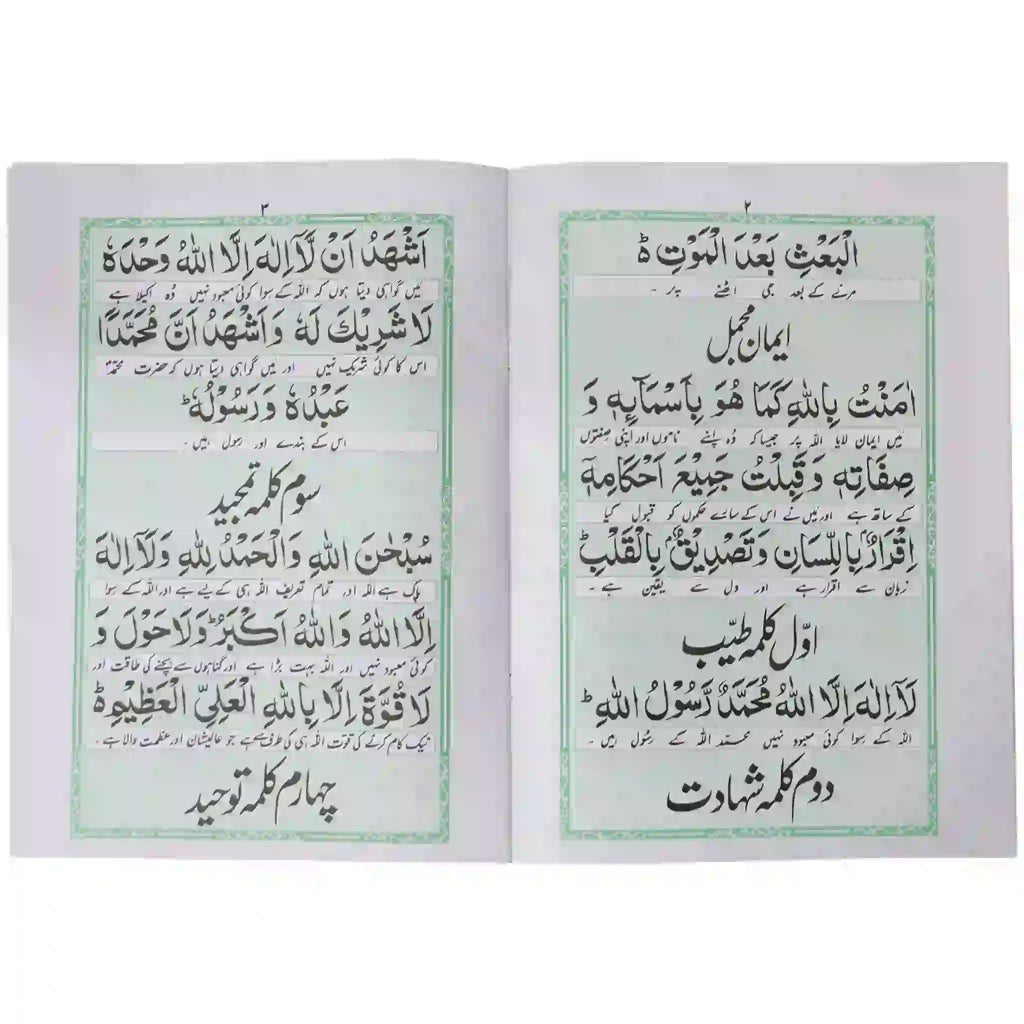 ٢
الْبَعْثِ بَعْدَ الْمَوْتِ ؕ
مرنے کے بعد جی اٹھنے پر ۔
ایمان مجمل
اٰمَنْتُ بِاللّٰهِ كَمَا هُوَ بِاَسْمَآئِهٖ وَ
میں ایمان لایا اللہ پر جیسا کہ وُہ اپنے ناموں اور اپنی صفتوں
صِفَاتِهٖ وَقَبِلْتُ جَمِيْعَ اَحْكَامِهٖٓ
کے ساتھ ہے اور میں نے اس کے سارے حکموں کو قبول کیا
اِقْرَارٌۢ بِاللِّسَانِ وَتَصْدِيْقٌۢ بِالْقَلْبِ ؕ
زبان سے اقرار ہے اور دل سے یقین ہے ۔
اوّل کلمہ طیّب
لَآ اِلٰهَ اِلَّا اللّٰهُ مُحَمَّدٌ رَّسُوْلُ اللّٰهِ ؕ
اللہ کے سوا کوئی معبود نہیں محمد اللہ کے رسُول ہیں ۔
دوم کلمہ شہادت
٣
اَشْهَدُ اَنْ لَّآ اِلٰهَ اِلَّا اللّٰهُ وَحْدَهٗ
میں گواہی دیتا ہوں کہ اللہ کے سوا کوئی معبود نہیں وُہ اکیلا ہے
لَا شَرِيْكَ لَهٗ وَاَشْهَدُ اَنَّ مُحَمَّدًا
اس کا کوئی شریک نہیں اور میں گواہی دیتا ہوں کہ حضرت محمدؐ
عَبْدُهٗ وَرَسُوْلُهٗ ؕ
اس کے بندے اور رسول ہیں ۔
سوم کلمہ تمجید
سُبْحٰنَ اللّٰهِ وَالْحَمْدُ لِلّٰهِ وَلَآ اِلٰهَ
پاک ہے اللہ اور تمام تعریف اللہ ہی کے لیے ہے اور اللہ کے سوا
اِلَّا اللّٰهُ وَاللّٰهُ اَكْبَرُ ؕ وَلَا حَوْلَ وَ
کوئی معبود نہیں اور اللہ بہت بڑا ہے اور گناہوں سے بچنے کی طاقت اور
لَا قُوَّةَ اِلَّا بِاللّٰهِ الْعَلِيِّ الْعَظِيْمِ ؕ
نیک کام کرنے کی قوت اللہ ہی کی طرف سے ہے جو عالیشان اور عظمت والا ہے ۔
چہارم کلمہ توحید